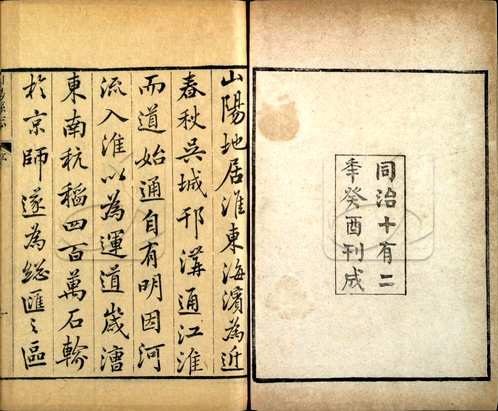 同治十有二
年癸酉刊成
山陽地居淮東海濱為近
春秋吳城邗溝通江淮
而道始通自有明因河
流入淮以為運道歲漕
東南秔稻四百萬石輸
於京師遂為總匯之區